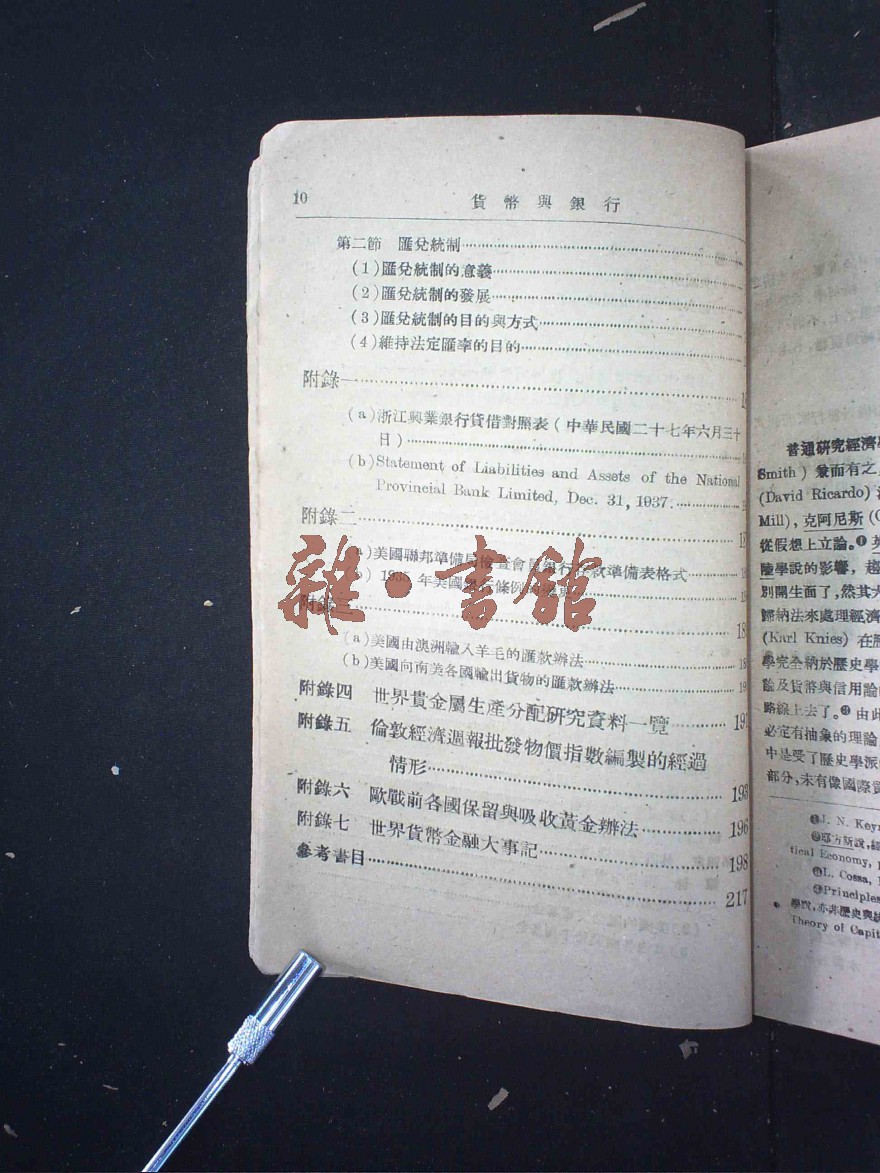 10 貨幣與銀行
第二節 匯兌統制
(1)匯兌統制的意義
(2)匯兌統制的發展
(3)匯兌統制的目的與方式
(4)維持法定匯率的目的
附錄一
(a)浙江興業銀行貸借對照表(中華民國二十七年六月三十
日)
(b)Statement of Liabilities and Assets of the National
Provincial Bank Limited, Dec. 31, 1937.
附錄二
(a)美國聯邦準備局檢查會員銀行存款準備表格式
年美國銀行條例的
附錄三
(a)美國由澳洲輸入羊毛的匯款辦法
(b)美國向南美各國輸出貨物的匯款辦法
附錄四 世界貴金屬生產分配研究資料一覽
附錄五 倫敦經濟週報批發物價指數編製的經過
情形 193
附錄六 歐戰前各國保留與吸收黃金辦法 196
附錄七 世界貨幣金融大事記 198
參考書目 217
雜·書館
普通研究經濟
Smith) 兼而有之,
(David Ricardo)
Mill), 克阿尼斯
從假想上立論。❶
陸學說的影響,
別開生面了,然其
歸納法來處理經濟
(Karl Knies) 在
學完全納於歷史學
論及貨幣與信用論
路線上去了。
必定有抽象的理論
中是受了歷史學派
部分,未有像國際
❶J. N. Key
耶方斯說,
tical Economy,
L. Cossa,
Principles
學說,亦非歷史與
Theory of Capit